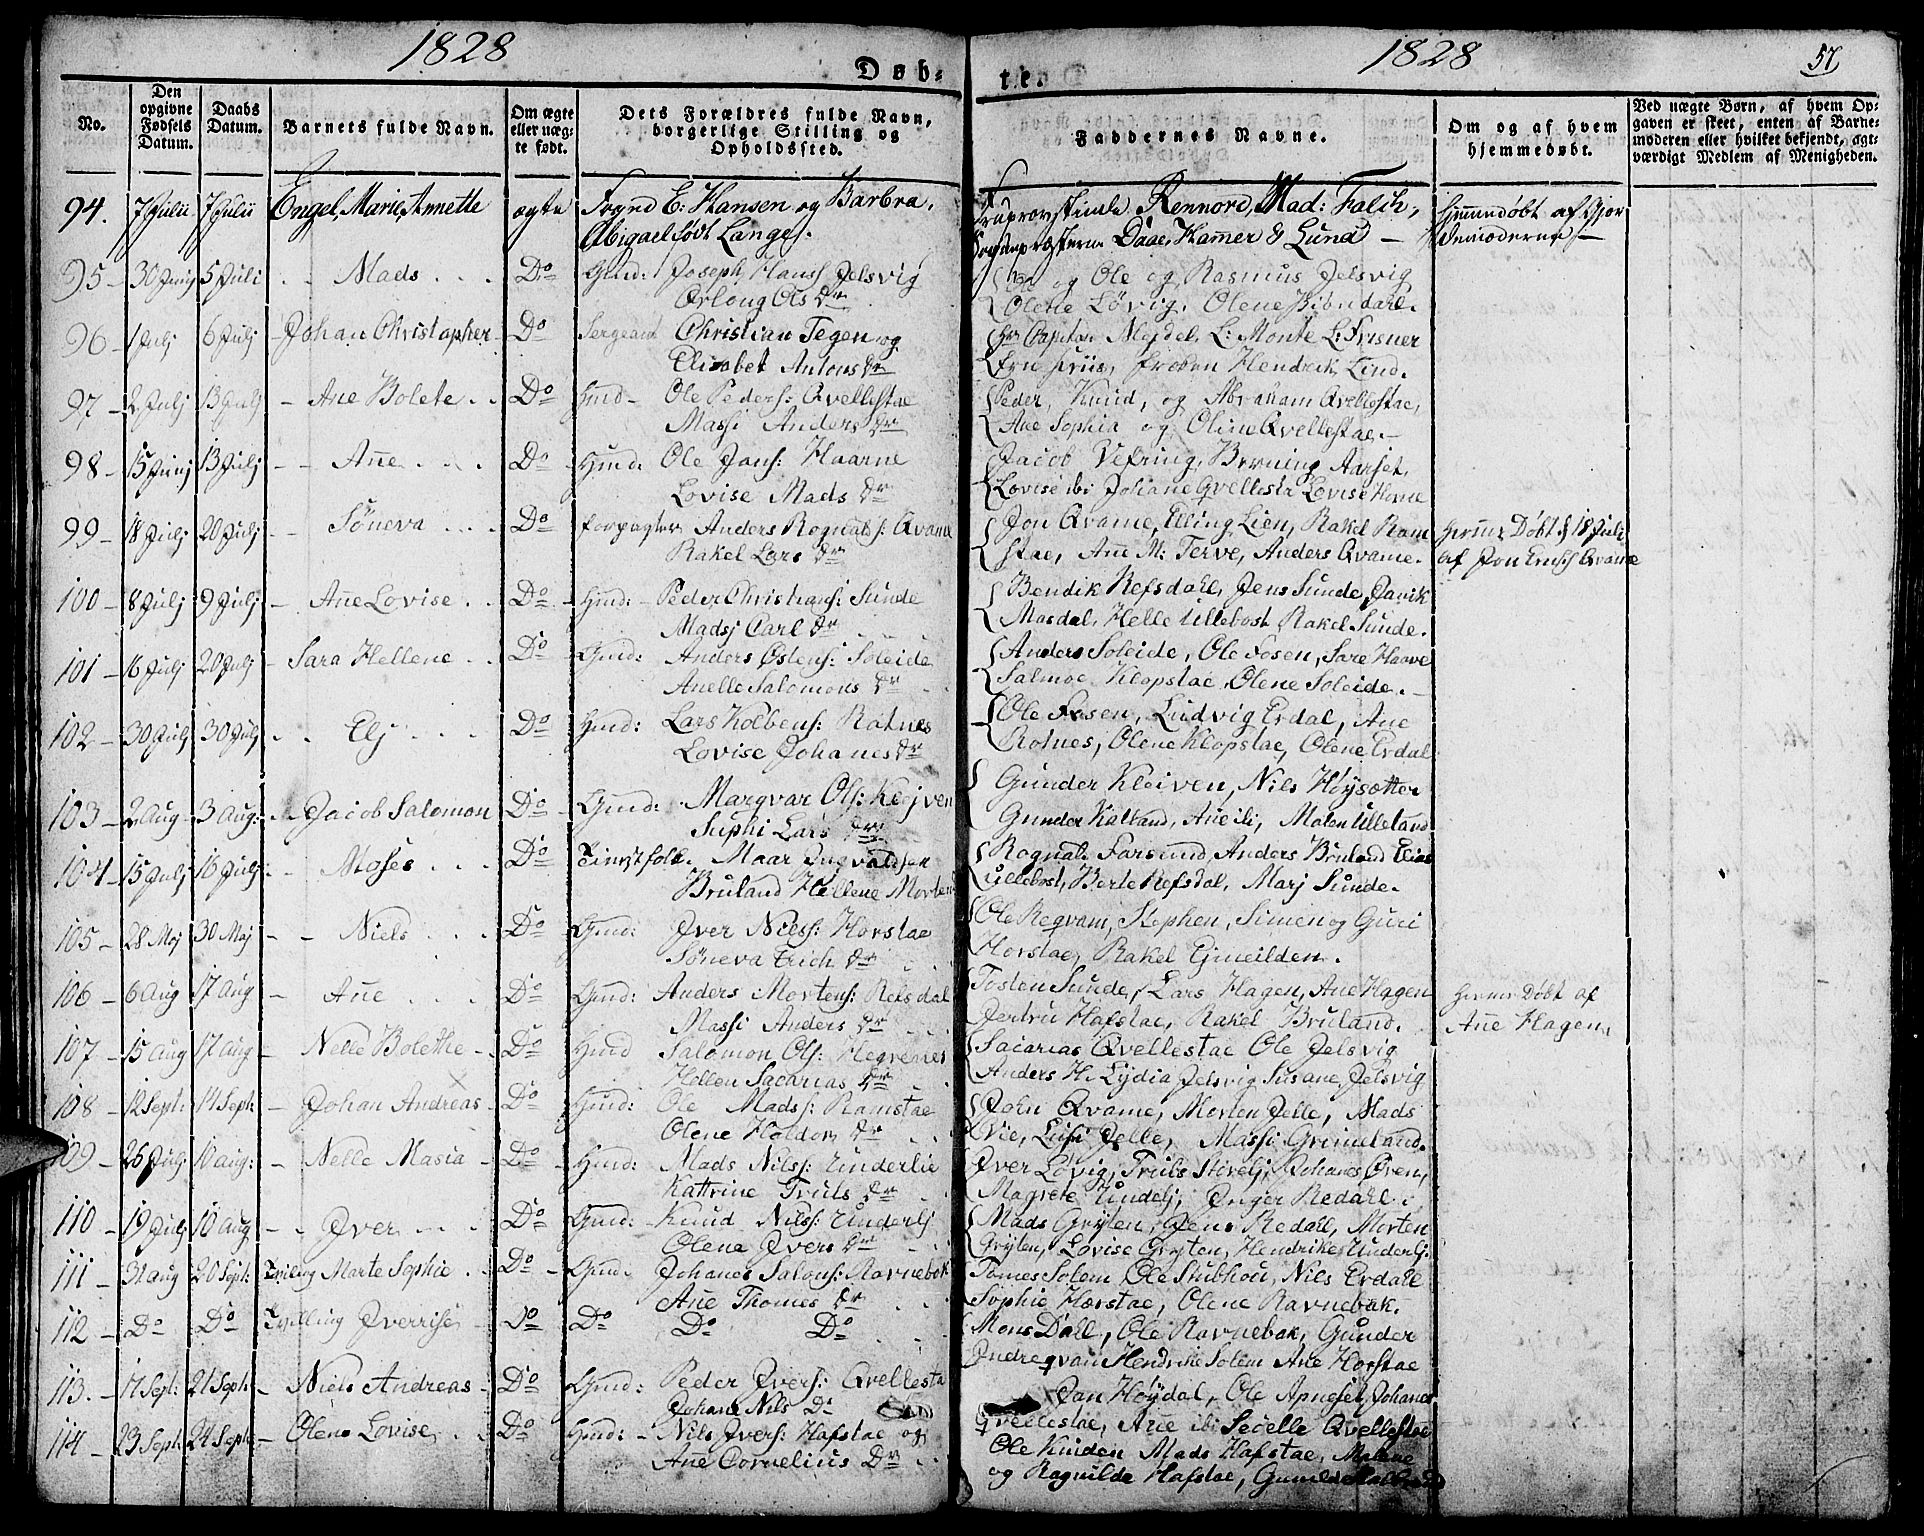 1828
Døb-
1828
te.
57
No.
Den opgivne Fødsels Datum.
Daabs Datum.
Barnets fulde Navn.
Om ægte eller uægte født.
Dets Forældres fulde Navn, borgerlige Stilling og Opholdssted.
Faddernes Navne.
Om og af hvem hjemmedøbt.
Ved uægte Børn, af hvem Opgaven er skeet, enten af Barnemoderen eller hvilket bekjendt, agtværdigt Medlem af Menigheden.
94. 7 Julii 7 Julii Engel Marie Annette ægte Sognp E: Hansen og Barbra Rennord, Mad: Falch,
Abigael født Lange. Daae, Hammer & Lund
95 30 Junij 5 Juli Mads Do Gmd: Joseph Hans: Jelsvig og Ole og Rasmus Jelsvig
Ols Dr Olene Løvig, Olene
96 1 Julj 6 Julj Johan Christopher Do Sergeant Christian Tegen og Capitain Mejdel, L: Monte L: Frisner
Elisabet Antons Dr Hendrik Lind.
97 2 Julj 13 Julj Ane Bolete Do Gmd Ole Peders: Qvellestae Peder, Knud, og Abraham Qvellestae,
Massi Anders Dr Ane Sophia og Oline Qvellestae.
98 15 Junj 13 Julj Ane Do Gmd: Ole Jans: Haarne Jacob Vefring, Berning Aarset,
Lovise Mads Dr Lovise ibi Johane Qvellesta Lovise Horne
99 18 Julj 20 Julj Søneva Do forpagter Anders Rognalds: Qvame Jon Qvame, Elling Lien, Rakel Ram hjemme Døbt d 18 Juli
Rakel Lars Dr stae, Ane M: Terve, Anders Qvame. af Jon Qvame
100 8 Julj 9 Julj Ane Lovise Do Gmd: Peder Christians: Sunde Bendik Refsdahl, Jens Sunde,
Madsj Carl Dr Masdal, Helle Ullebost Rakel Sunde.
101 16 Julj 20 Julj Sara Hellene Do Gmd: Anders Østens: Soleide Anders Soleide, Ole Fosen, Sare Haave
Anelle Salomons Dr Salmoe Klopstae, Olene Soleide.
102 30 Julj 30 Julj Elj Do Gmd: Lars Kolbens: Rotnes Ole Fosen, Ludvig Erdal, Ane
Lovise Johanes Dr Rotnes, Olene Klopstae, Olene Erdal
103 2 Aug 3 Aug: Jacob Salomon Do Gmd: Margvar Ols: Klejven Gunder Kleiven, Nils Høysætter
Suphi Lars Dr Gunder Kalland, Ane ib, Malen Ulleland
104 15 Julj 16 Julj Moses Do Tinestfolk Maar Ingvaldsen Rognal: Farsund Anders Bruland Elias
Bruland Hellene Morten Ullebost, Berte Refsdal, Marj Sunde.
105 28 Maj 30 Maj Niels Do Gmd: Jver Nilss: Horstae Ole Reqvam, Stephen, Simen og Guri
Søneva Erich Dr Horstae, Rakel
106 6 Aug 17 Aug Ane Do Gmd: Anders Mortens: Refsdal Tosten Sunde, Lars Hagen, Ane Hagen hjemme Døbt af
Massi Anders Dr Jertru Hafstae, Rakel Bruland. Ane Hagen,
107 15 Aug 17 Aug Nelle Bolethe Do Gmd Salomon Ols: Hegrenes Sacarias Qvellestae Ole Jelsvig
Hellen Sacarias Dr Anders H. Lydia Jelsvig Susane Jelsvig
108 12 Sept: 14 Sept: Johan Andreas Do Gmd: Ole Madss: Ramstae John Qvame, Morten Jelle, Mads
Olene Holdor Dr Vie, Jelle, Massi Grimeland.
109 25 Julj 10 aug: Nelle Masia Do Gmd: Mads Nilss: Underlie Jver Løvig, Truls Johanes Øren,
Kattrine Truls Dr Magrete Undelj, Inger Redahl
110 19 Julj 10 Aug Jver Do Gmd: Knud Nilss: Underlj Mads Gryten, Jens Redahl, Morten
Olene Jvers Dr Gryten, Lovise Gryten, Hendrike Underlj.
111 31 aug 20 Sept: Tvilling Marte Sophie Do Gmd. Johanes Salons: Ravnebak Tomes Solem Ole Stubhou, Nils Erdahl
Ane Thomes Dr Sophie Horstae, Olene Ravnebak.
112 Do Do Tvilling Jverrise Do Do Do Do Mons Dahl, Ole Ravnebak, Gunder
Indreqvam Hendrike Solem Ane Horstae
113. 17 Sept: 21 Sept: Niels Andreas Do Gmd: Peder Jvers: Qvellesta Jan Høydal, Ole Johanes
Johane Nils Dr Qvellestae, Ane ibi Qvellestae
114 23 Sept: 24 Sept: Olene Lovise Do Gmd: Nils Jvers: Hafstae og Ole Kinden Mads Hafstae, Malene
Ane Cornelius Dr og Ragnilde Hafstae,